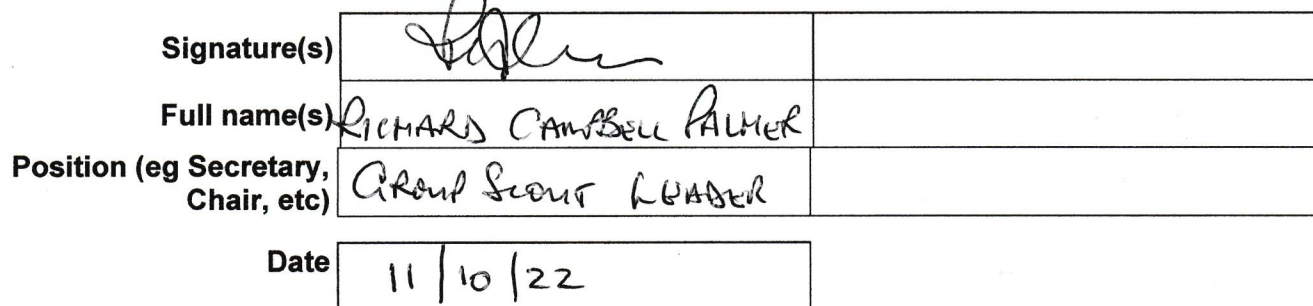 Signature(s)
Full name(s) RICHARD CAMPBELL PALMER
Position (eg Secretary,
Chair, etc) GROUP SCOUT LEADER
Date 11/10/22